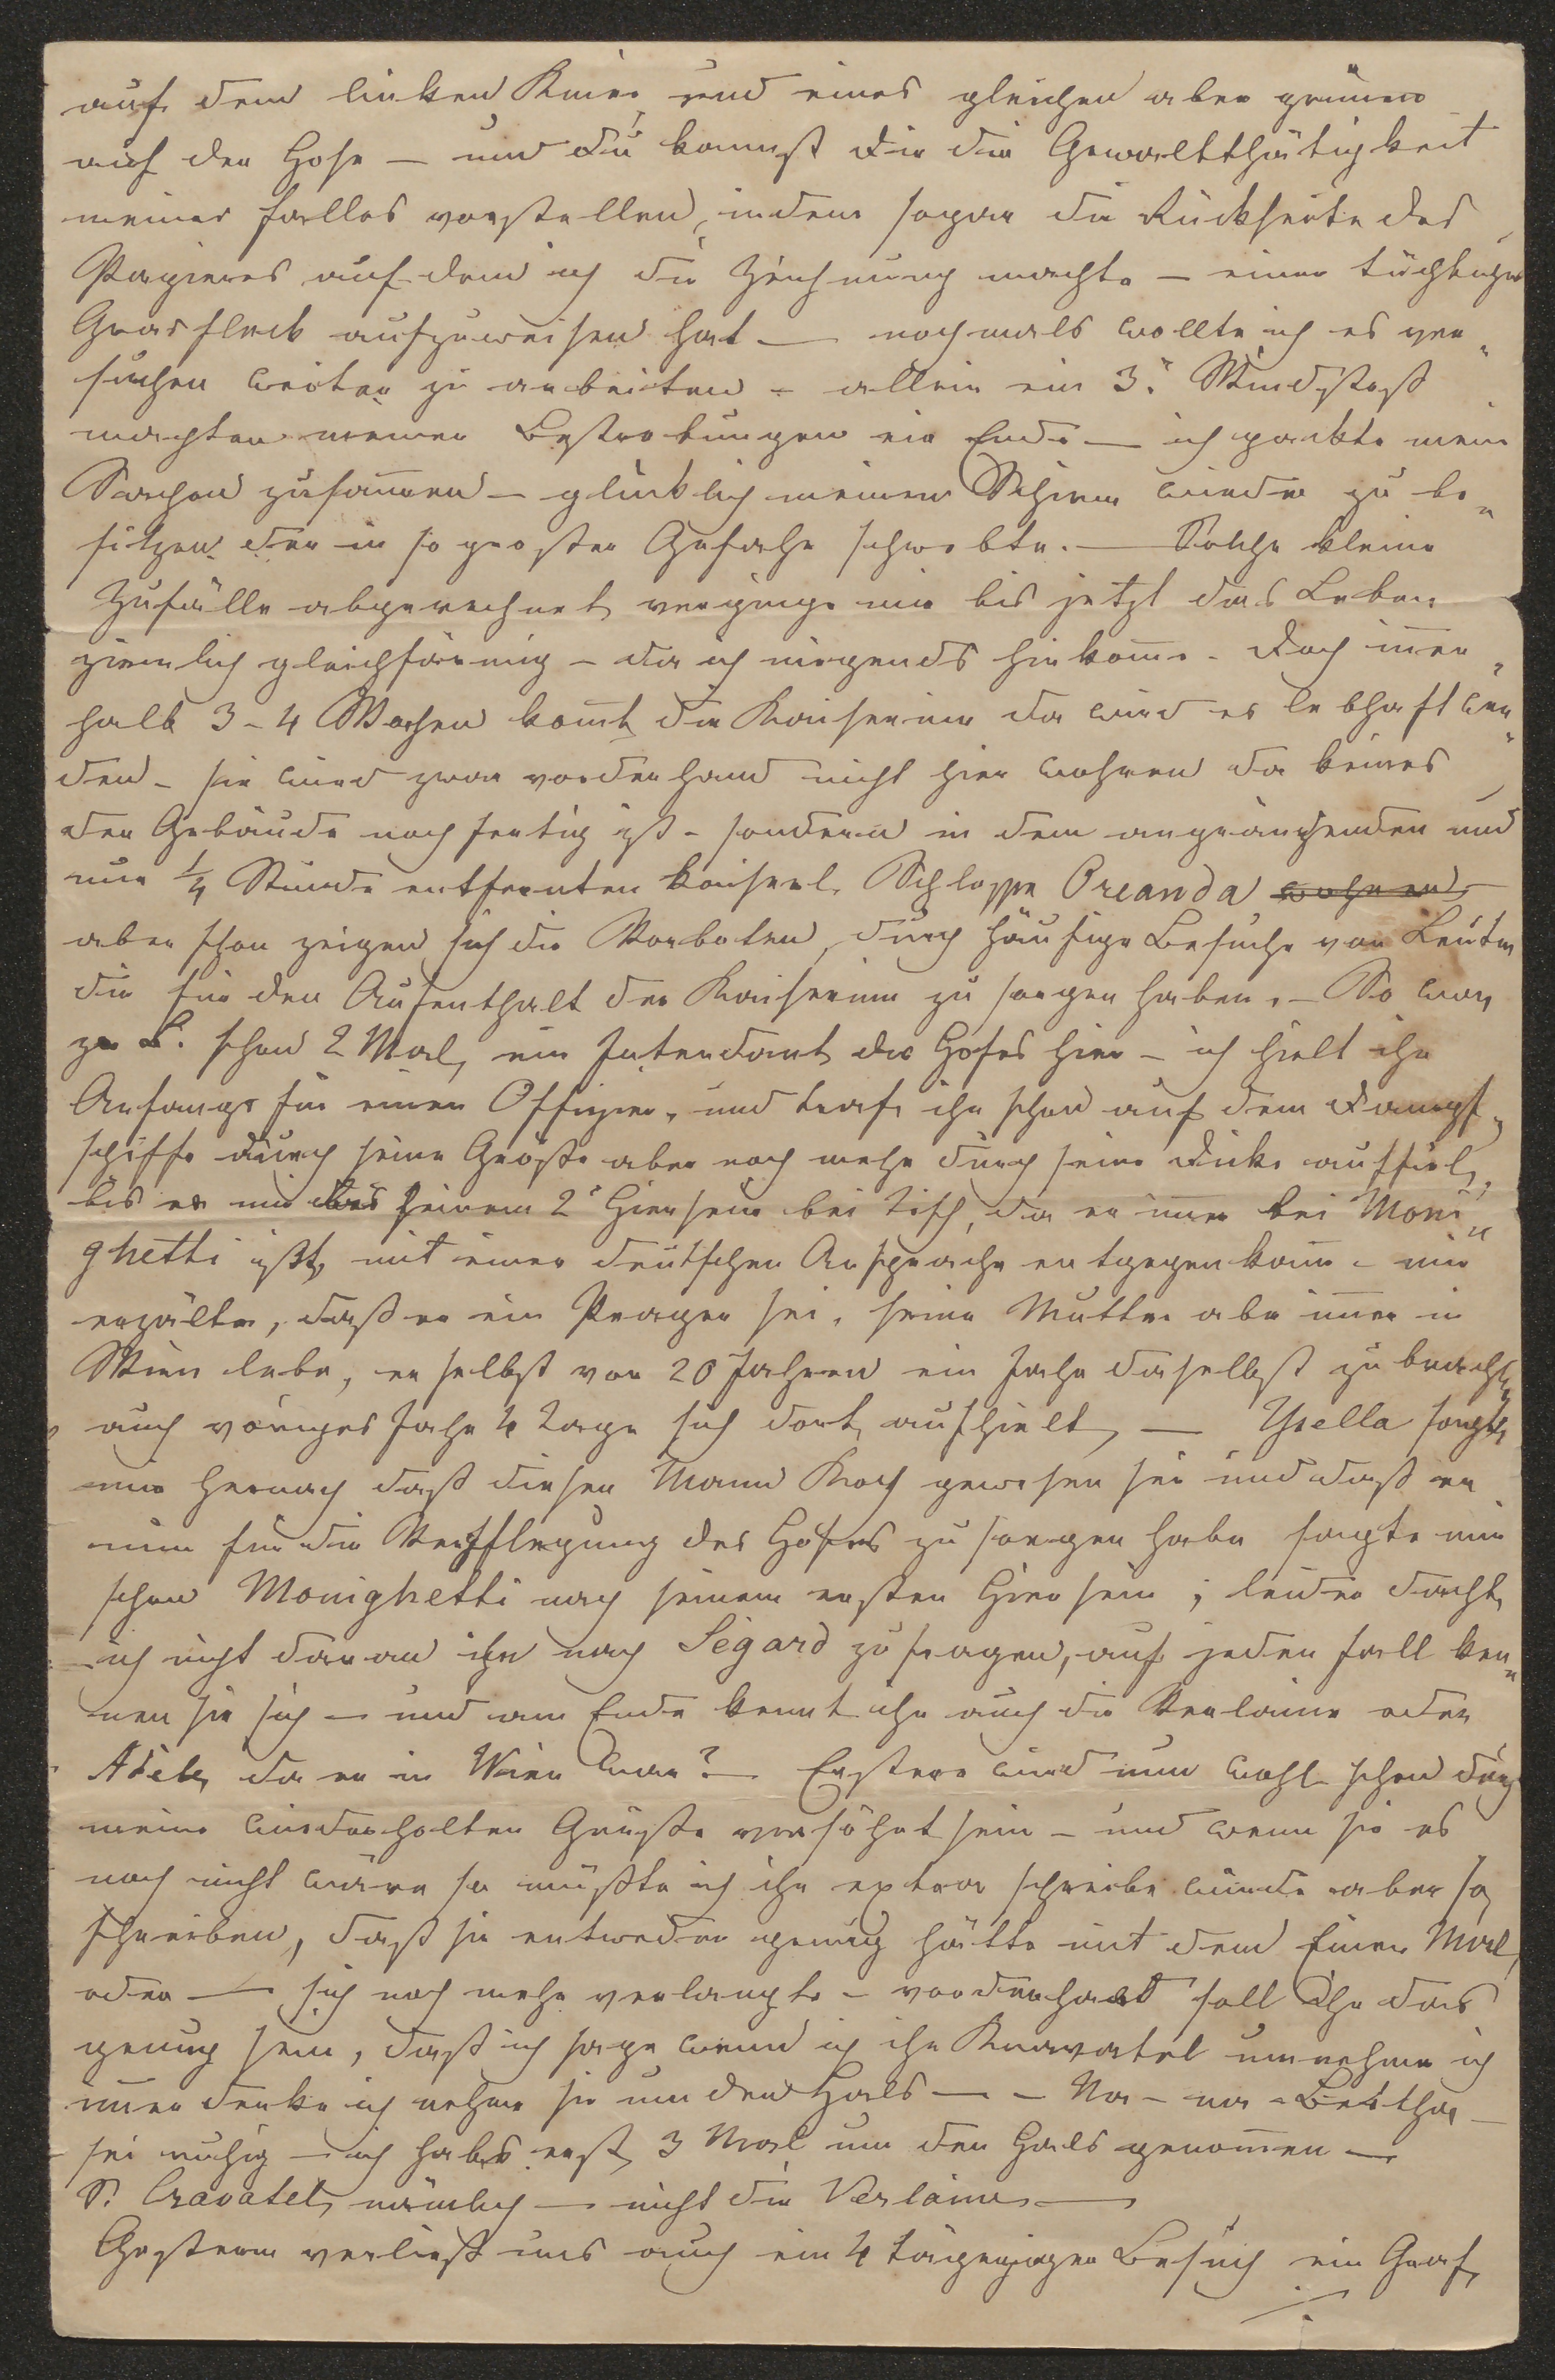 auf dem linken Knie und eines gleichen aber grünen
auf der Hose – und Du kannst Dir die Gewaltthätigkeit
meines Falles vorstellen, indem sogar die Rückseite des
Papieres auf dem ich die Zeichnung machte – einen tüchtigen
Grasfleck aufzuweisen hat – nochmals wollte ich es ver„
suchen weiter zu arbeiten – allein ein 3r Windstoß
machten meinen Bestrebungen ein Ende – ich packte meine
Sachen zusam̅en – glücklich meinen Schirm wieder zu be„
sitzen der in so großer Gefahr schwebte. – Solche kleine
Zufälle abgerechnet verginge mir bis jetzt das Leben
ziemlich gleichförmig – da ich nirgends hinkom̅e. Doch in̅er„
halb 3–4 Wochen kom̅t die Kaiserinn da wird es lebhaft wer„
den – sie wird zwar vorderhand nicht hier wohnen da keines
der Gebäude noch fertig ist – sondern in dem angränzenden und
nur ¼ Stunde entfernten kaiserl. Schlosse Oreanda wohnen –
aber schon zeigen sich die Vorboten, durch häufige Besuche von Leuten
die für den Aufenthalt der Kaiserinn zu sorgen haben. – So war
z. B. schon 2 Mal, ein Intendant des Hofes hier – ich hielt ihn
Anfangs für einen Offizier, und traf ihn schon auf dem Dampf„
schiffe durch seine Größe aber noch mehr durch seine Dicke auffiel,
bis er mir bei seinem 2n Hiersein bei Tisch, da er im̅er bei Moni„
ghetti ißt, mit einer deutschen Ansprache entgegenkam – mir
erzälte, daß er ein Prager sei, seine Mutter aber im̅er in
Wien lebe, er selbst vor 20 Jahren ein Jahr daselbst zubrachte,
auch voriges Jahr 4 Tage sich dort aufhielt, – Ysella sagte
mir hernach daß dieser Mann Koch gewesen sei und daß er
nun für die Verpflegung des Hofes zu sorgen habe sagte mir
schon Monighetti nach seinem ersten Hiersein; leider dacht
ich nicht daran ihn nach Ségard zu fragen, auf jeden Fall ken„
nen sie sich – und am Ende kennt ihn auch die Verlaine oder
Adèle, da er in Wien war? – Erstere wird nun wohl schon durch
meine wiederholten Grüße versöhnt sein – und wenn sie es
noch nicht wäre so müßte ich ihr extra schreiben würde aber so
schreiben, daß sie entweder genug hätte mit dem Einen Mal,
oder – sich noch mehr verlangte – vorderhand soll ihr das
genug sein, daß ich sage wenn ich ihr Kravatel umnehme ich
im̅er denke ich nehme sie um den Hals – – Na – na – Bertha –
sei ruhig – ich habs erst 3 Mal um den Hals genom̅en –
S' Cravatel, nämlich – nicht die Verlaine –
Gestern verließ uns auch ein 4 tägiger Besuch ein Graf,